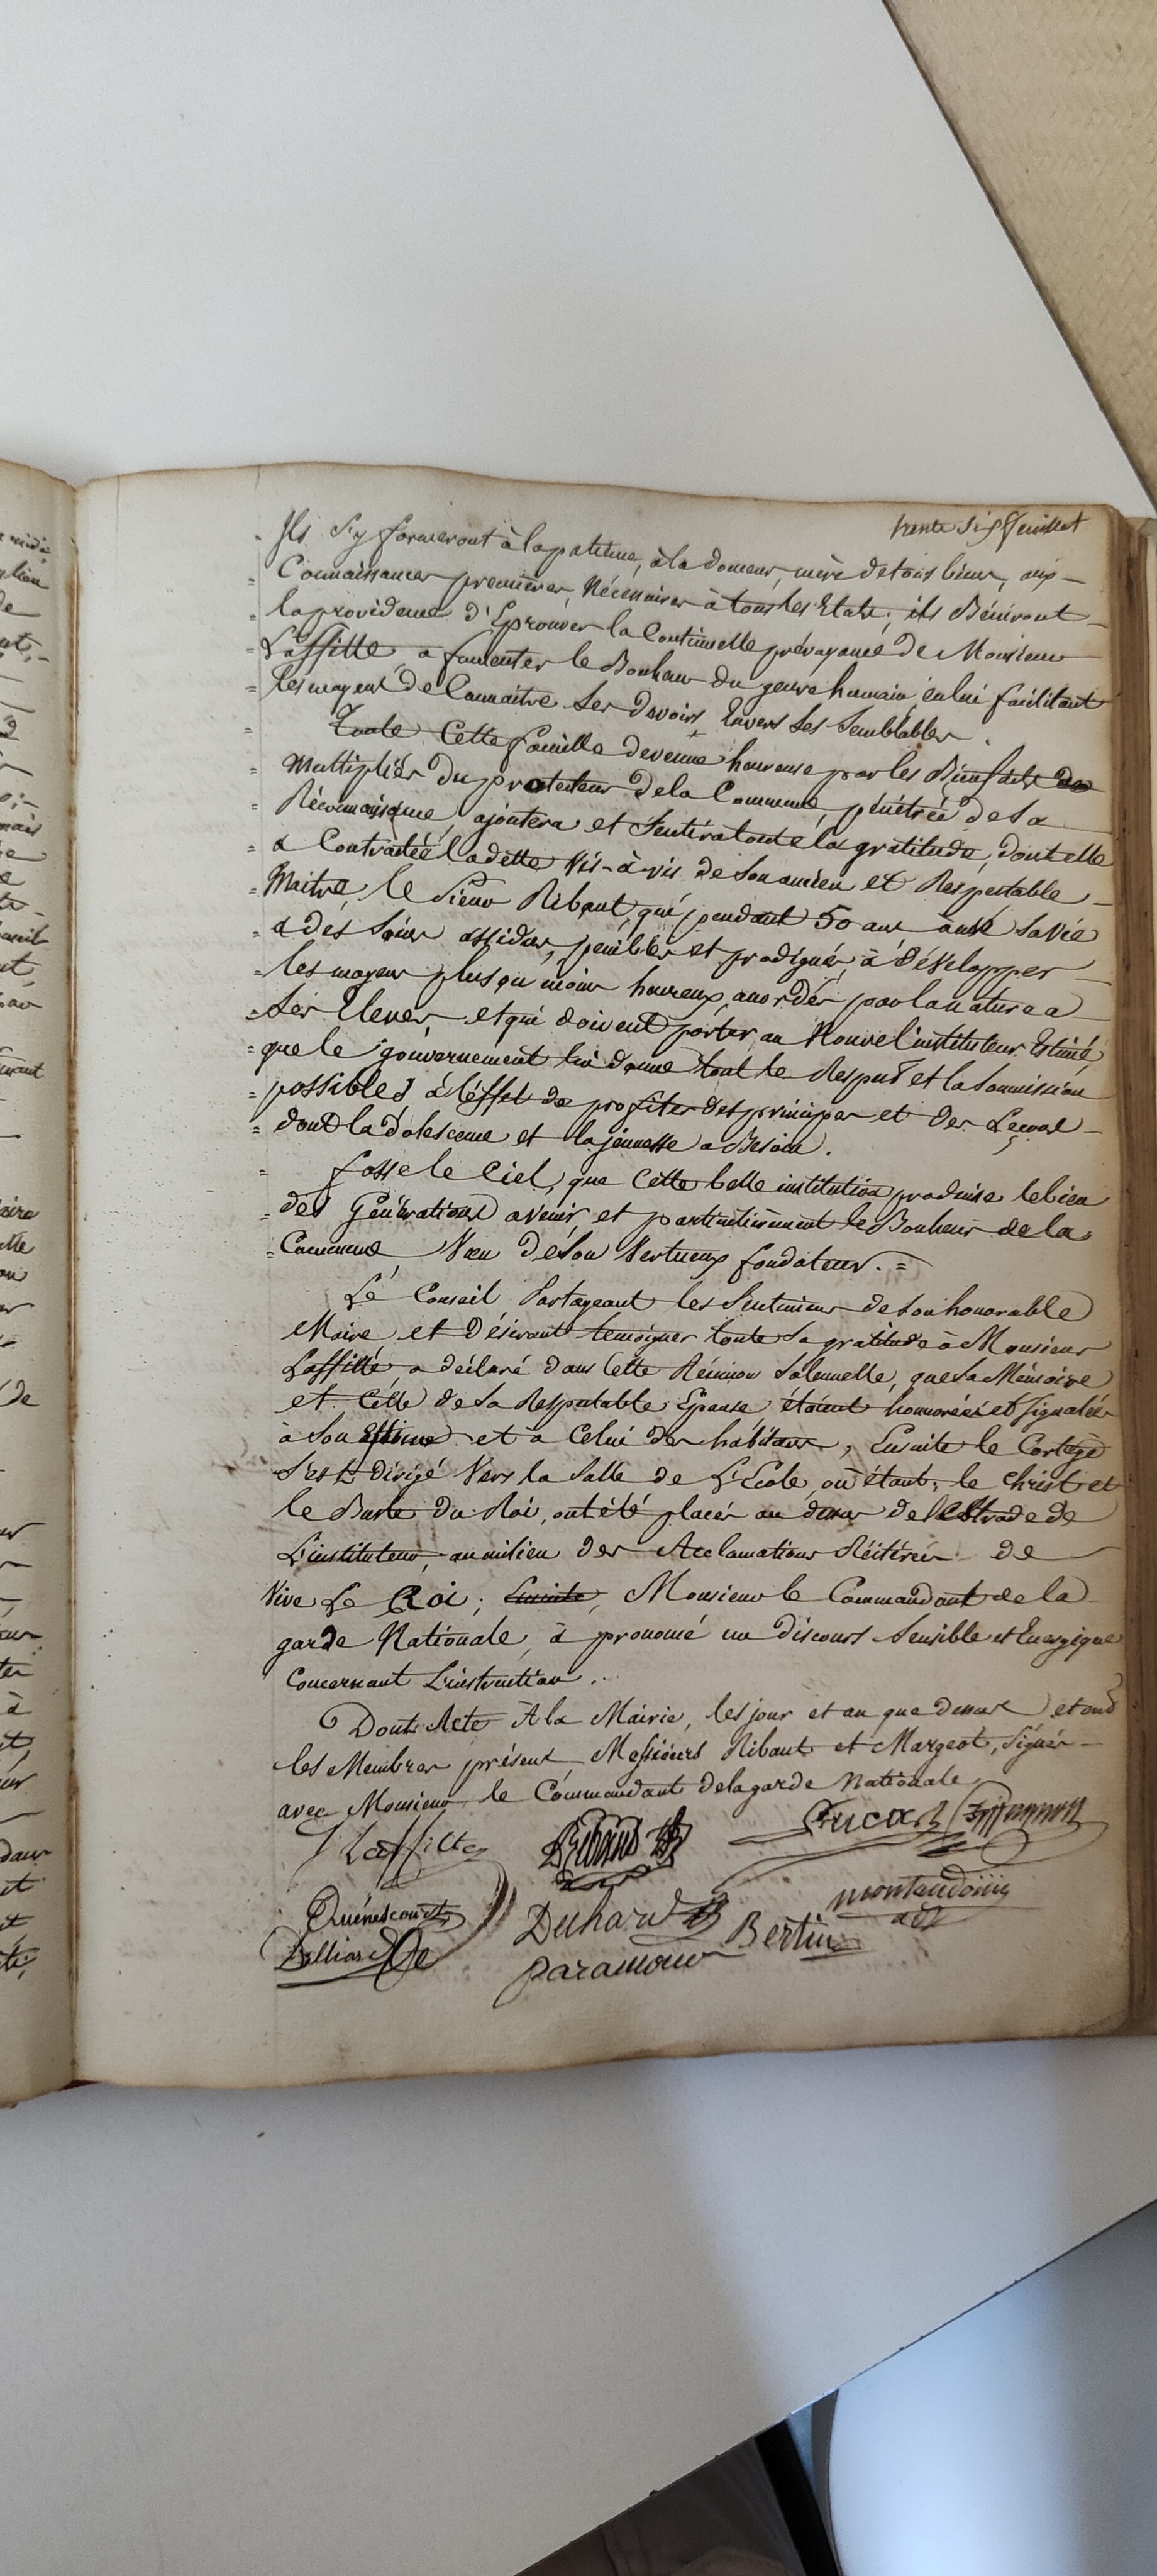 trente six feuillet
Ils s'y formeront à la patience, à la douceur, mère de tous biens, aux
Connaissances premières, Nécessaires à tous les Etats; ils Béniront
la providence d'Eprouver la Continuelle prévoyance de Monsieur
Laffitte, a fomenter le Bonheur du genre humain, en lui facilitant
les moyens de Connaitre Ses devoirs Envers Ses Semblables.
Toute Cette famille devenue heureuse par les Bienfaits
Multipliés du protecteur de la Commune, pénétrée de Sa
Réconnaissance, ajoutera et Sentira toute la gratitude, dont elle
a Contractée la dette Vis-à-vis de Son ancien et Respectable
Maitre, le Sieur Ribaut, qui pendant 50 ans a usé Sa Vie
a des Soins assidus, penibles et prodigués, à développer
les moyens plus ou moins heureux, accordés par la nature a
Ses Eleves, et qui doivent porter au Nouvel instituteur Estimé,
que le gouvernement lui donne tout le Respect et la Soumission
possibles à l'effet de profiter des principes et des Leçons
dont la dolescence et la jeunesse a Besoin.
fasse le Ciel, que Cette belle institution produise le bien
des Générations avenir, et particulierement le Bonheur de la
Commune Vœu de Son Vertueux fondateur. =
Le Conseil Partageant les Sentimens de Son honorable
Maire et Désirant temoigner toute Sa gratitude à Monsieur
Laffitte, a déclaré dans Cette Réunion Solennelle, que Sa Mémoire
et Celle de Sa Respectable Epouse étaient honorées et Signalées
à Son Estime et à Celui des habitans, Ensuite le Cortège
s'est dirigé Vers la Salle de L'Ecole, où étant, le Christ et
le Buste du Roi, ont été placés au dessus de l'estrade de
L'instituteur, au milieu des Acclamations Réitérées de
Vive Le Roi; Ensuite, Monsieur le Commandant de la
garde Nationale, à prononcé un discours Sensible et Energique
Concernant L'instruction.
Dont Acte A la Mairie, les jour et an que dessus et ont
les Membres présens, Messieurs Ribaut et Margeot, Signés
avec Monsieur le Commandant de la garde Nationale
J Laffitte Ribaut
Quénescourt Duhard Bertin montaudoin
adj
paramour